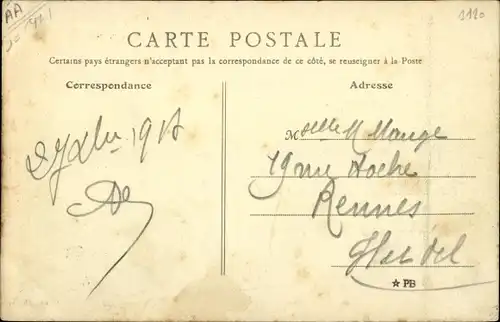 AA
3120
CARTE POSTALE
Certains pays étrangers n'acceptant pas la correspondance de ce côté, se renseigner à la Poste
Correspondance
Adresse
Mselle M Mauge
19 rue Hoche
Rennes
Ille et Vil
PB